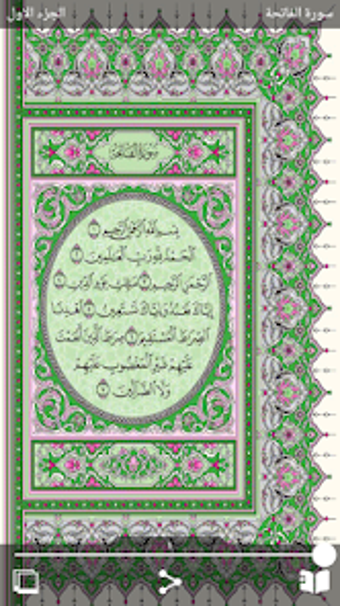 سورة الفاتحة
الجزء الأول
سورة الفاتحة
بسم الله الرحمن الرحيم ١
الحمد لله رب العالمين ٢
الرحمن الرحيم ٣ مالك يوم الدين ٤
إياك نعبد وإياك نستعين ٥ اهدنا
الصراط المستقيم ٦ صراط الذين أنعمت
عليهم غير المغضوب عليهم
ولا الضالين ٧